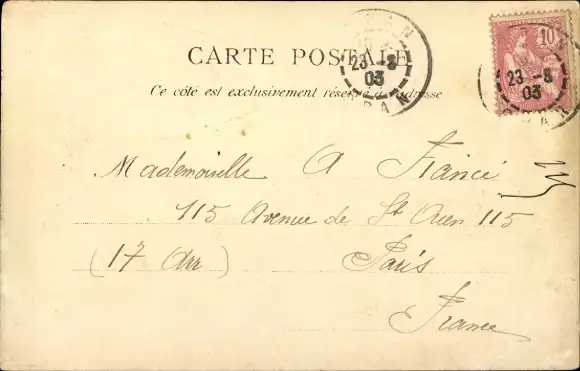 CARTE POSTALE
Ce côté est exclusivement réservé à l'adresse
23 -8
03
10
23 -8
03
Mademoiselle A Francé
115 Avenue de St Ouen 115
(17 Arr) Paris
France